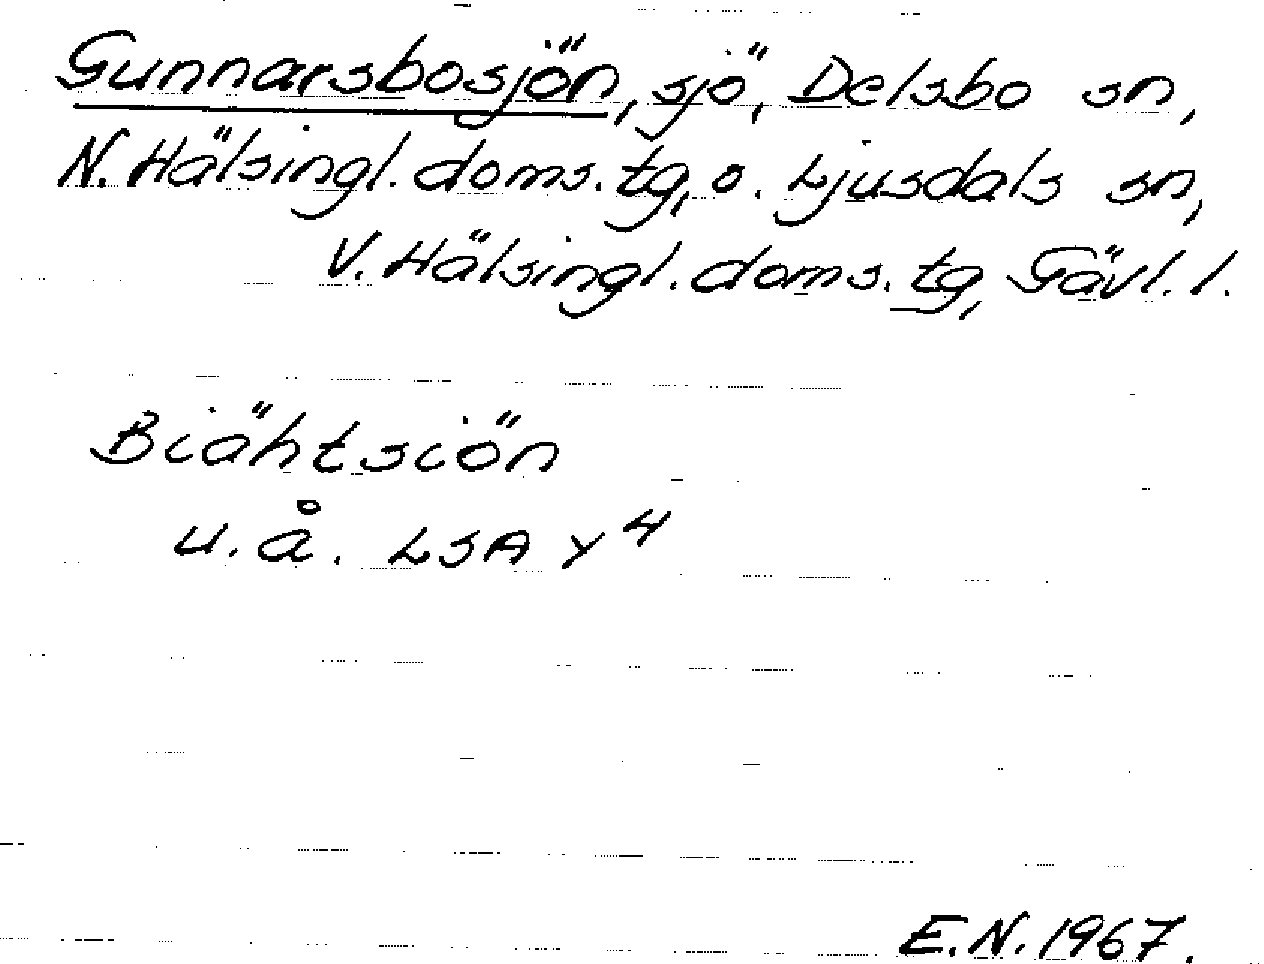 Gunnarsbosjön, sjö, Delsbo sn,
N. Hälsingl. doms. tg, o. Ljusdals sn,
V. Hälsingl. doms. tg, Gävl. l.
Biähtsiön
u. å. LSA Y 4
E.N. 1967.